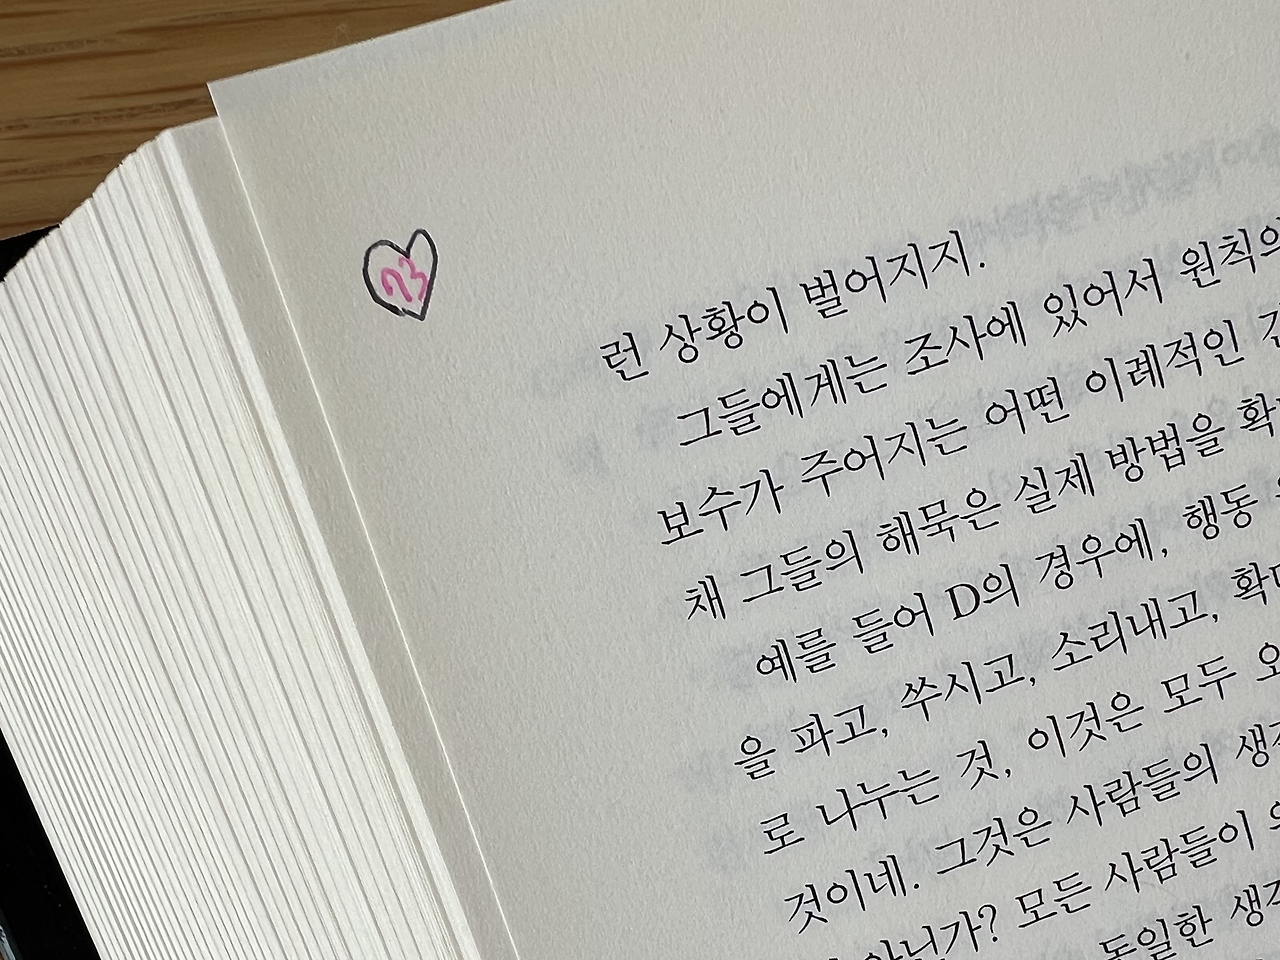 93
런 상황이 벌어지지.
그들에게는 조사에 있어서 원칙의
보수가 주어지는 어떤 이례적인
채 그들의 해묵은 실제 방법을
예를 들어 D의 경우에, 행동
을 파고, 쑤시고, 소리내고,
로 나누는 것, 이것은 모두
것이네. 그것은 사람들의
아닌가? 모든 사람들이
동일한